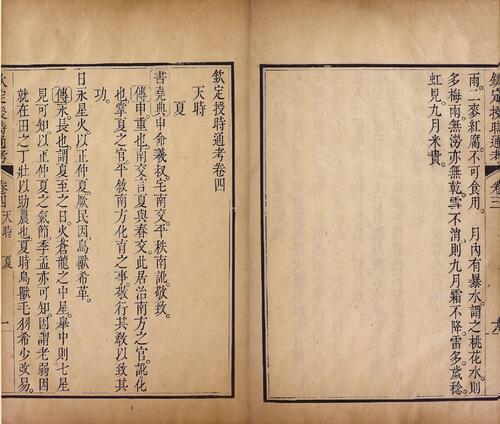 授時通考 卷三
雨。二麥紅腐。不可食用。 月內有暴水。謂之桃花水。則
多梅雨。無澇亦無乾。雪不消。則九月霜不降。雷多歲稔。
虹見。九月米貴。
欽定授時通考卷四
天時
夏
書堯典申命羲叔。宅南交。平秩南訛。敬致。
傳申重也。南交言夏與春交。此居治南方之官。訛化
也。掌夏之官。平敘南方化育之事。敬行其教以致其
功。
日永星火以正仲夏。厥民因。鳥獸希革。
傳永長也。謂夏至之日。火蒼龍之中星。舉中則七星
見可知。以正仲夏之氣節。季孟亦可知。因謂老弱因
就在田之丁壯以助農也。夏時鳥獸毛羽希少改易。
欽定授時通考 卷四 天時 夏 一